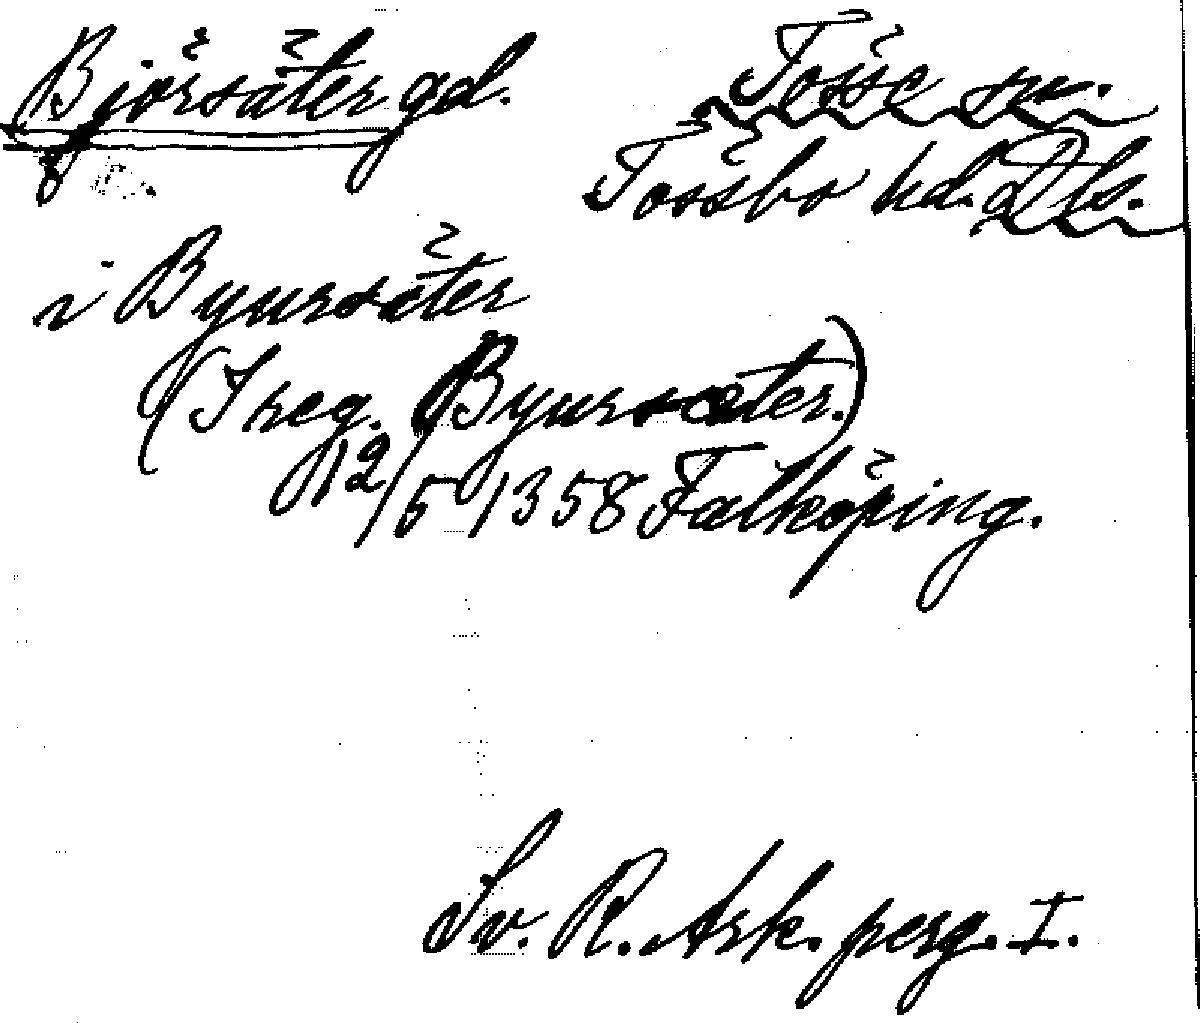 Björsäter gd. Tösse sn.
Tössbo hd. Dls.
i Byursäter
(I reg. Byursæter.)
12/5 1358 Falköping.
Sv. R. Ark. perg. I.